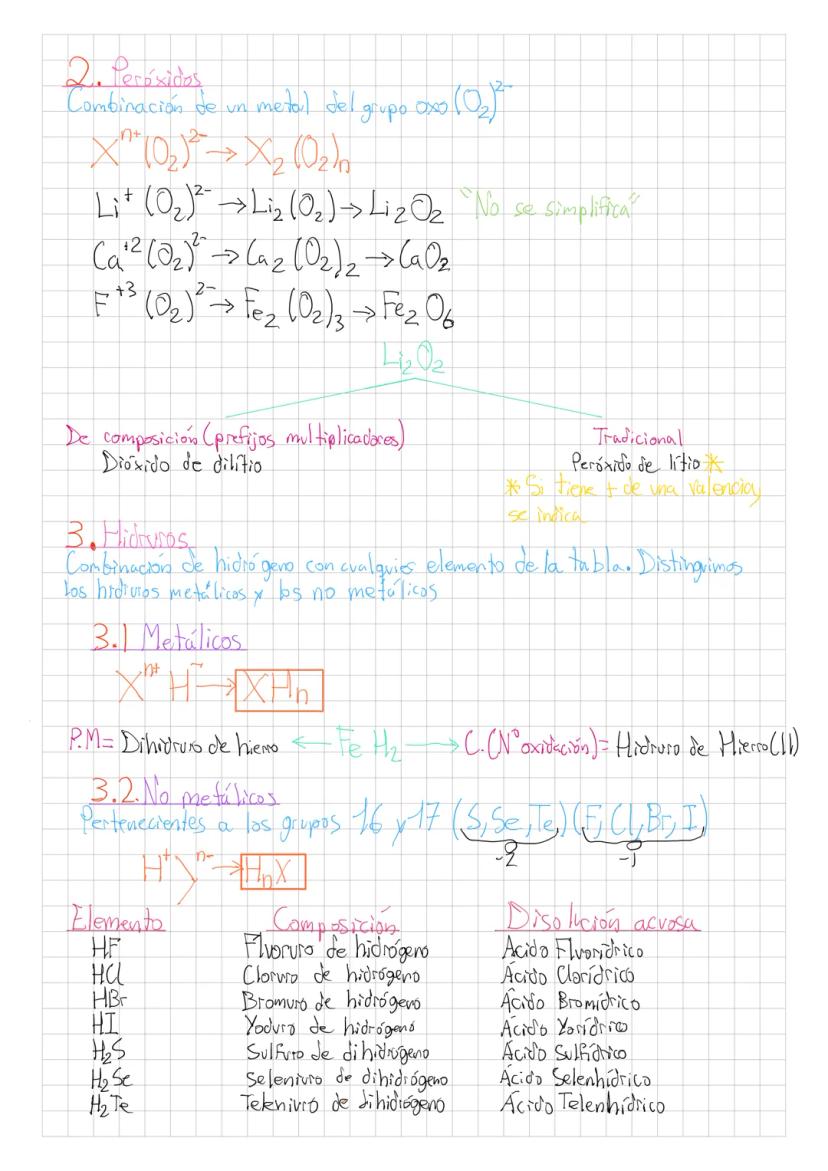 2. Peróxidos
Combinación de un metal del grupo oxo (O₂)²⁻
Xⁿ⁺(O₂)²⁻ → X₂(O₂)ₙ
Li⁺(O₂)²⁻ → Li₂(O₂) → Li₂O₂ "No se simplifica"
Ca⁺²(O₂)²⁻ → Ca₂(O₂)₂ → CaO₂
F⁺³(O₂)²⁻ → Fe₂(O₂)₃ → Fe₂O₆
Li₂O₂
De composición (prefijos multiplicadores) Tradicional
Dióxido de dilitio Peróxido de litio *
* Si tiene + de una valencia,
se indica
3. Hidruros
Combinación de hidrógeno con cualquier elemento de la tabla. Distinguimos
los hidruros metálicos y los no metálicos
3.1 Metálicos
Xⁿ⁺ H⁻ → XHₙ
P.M = Dihidruro de hierro ← FeH₂ → C.(Nº oxidación) = Hidruro de Hierro (II)
3.2. No metálicos
Pertenecientes a los grupos 16 y 17 (S, Se, Te) (F, Cl, Br, I)
-2 -1
H⁺ Yⁿ⁻ → HₙX
Elemento Composición Disolución acuosa
HF Fluoruro de hidrógeno Ácido Fluorídrico
HCl Cloruro de hidrógeno Ácido Clorídrico
HBr Bromuro de hidrógeno Ácido Bromídrico
HI Yoduro de hidrógeno Ácido Yorídrico
H₂S Sulfuro de dihidrógeno Ácido Sulfídrico
H₂Se Seleniuro de dihidrógeno Ácido Selenhídrico
H₂Te Teleniuro de dihidrógeno Ácido Telenhídrico